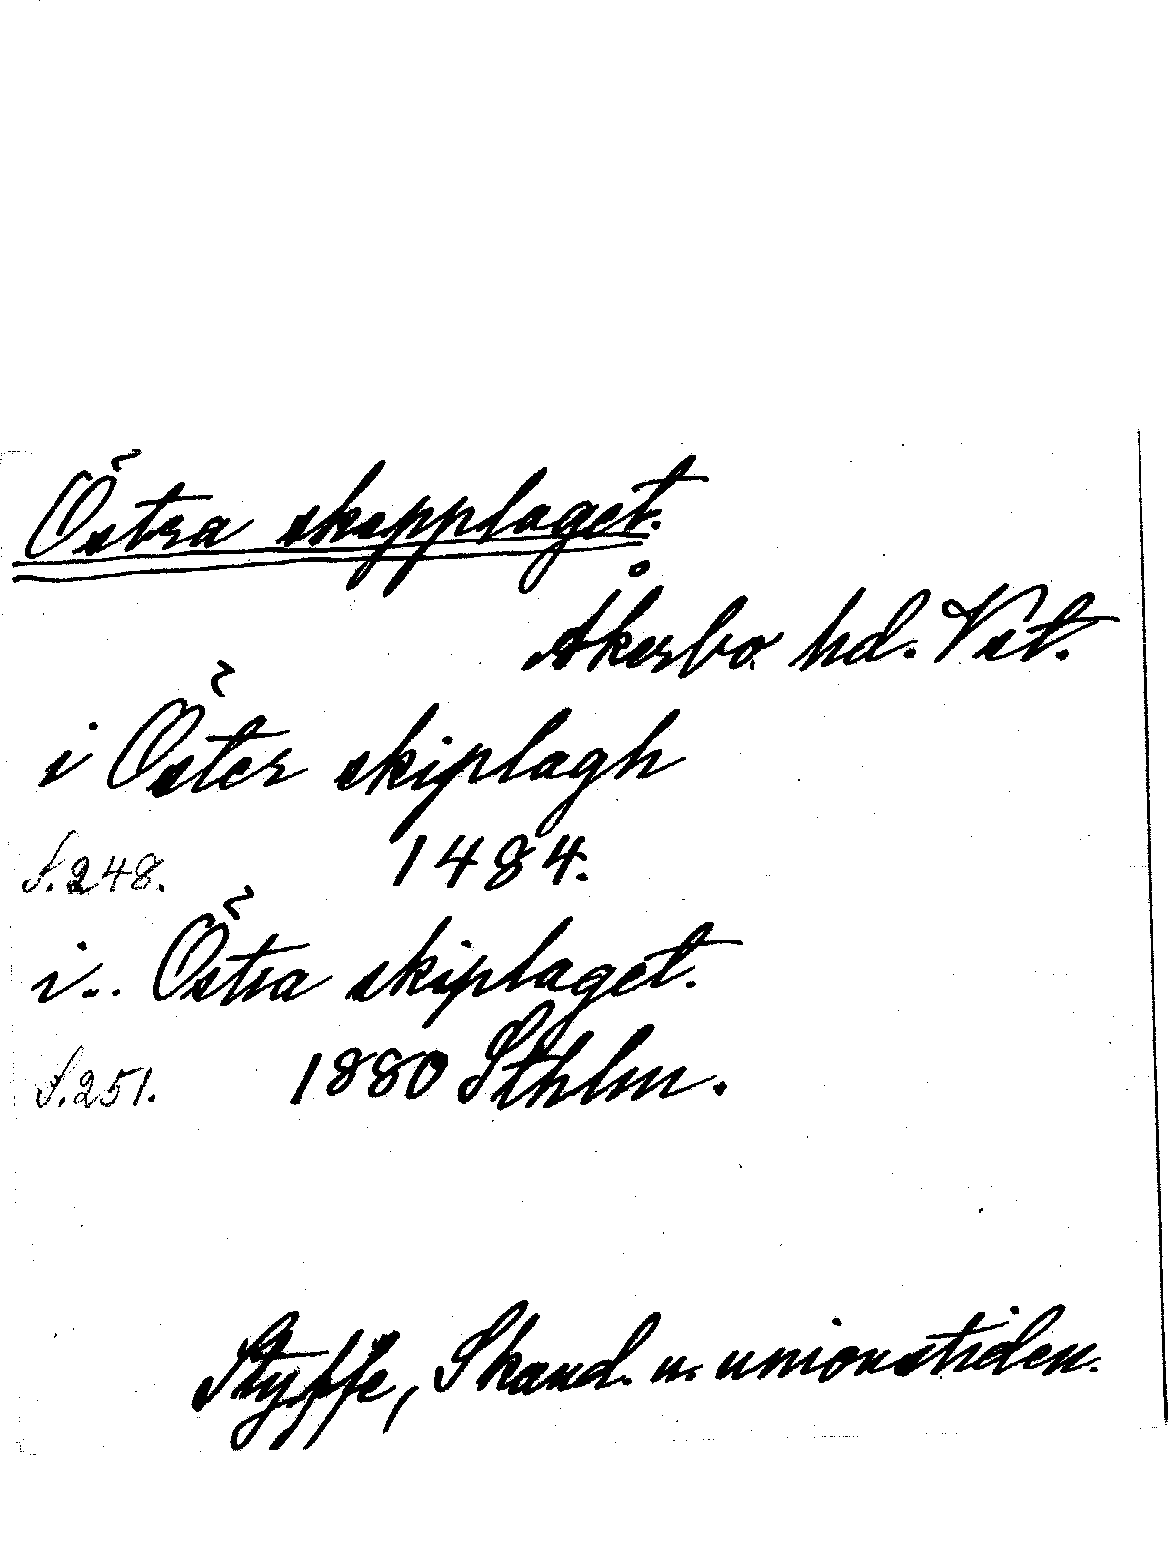 Östra skepplaget.
Åkerbo hd. Vst.
i Öster skiplagh
S. 248. 1484.
i.. Östra skiplaget.
S. 251. 1880 Sthlm.
Styffe, Skand. u. unionstiden.